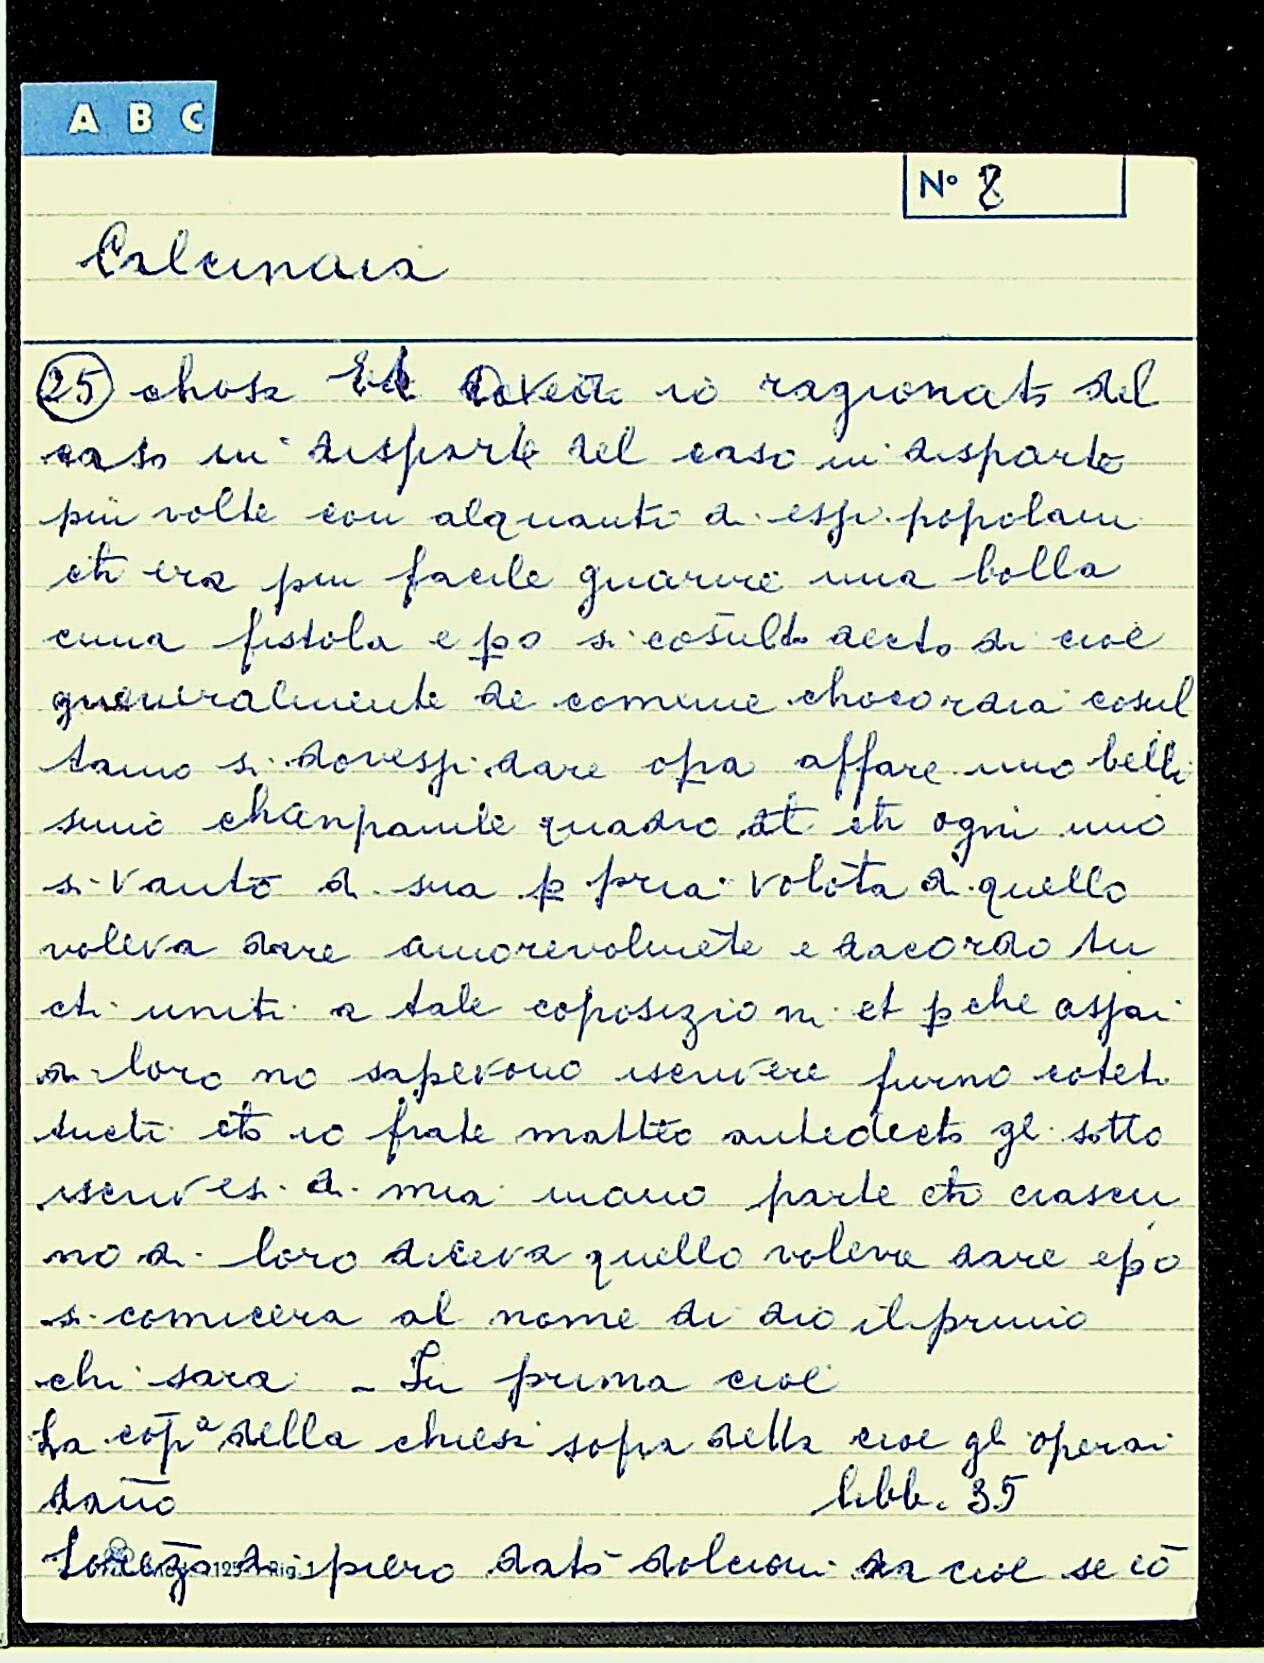 A B C
N° 8
Calcinaia
25 chosa Et avēdo io ragionato del
caso in disparte del caso in disparte
più volte con alquanti di essi popolani
ch̄ era piu facile guarire una bolla
cuna fistola e p̱o si cōsulto decto di cioè
gueneralmente de comune chocordia cosul
tamo si dovessi dare opa affare uno belli
simo chanpanile quadro et ch̄ ogni uno
si vantō di sua p̱ pria volōta di quello
voleva dare amorevolmēte e dacordo tu
cti uniti a tale coposizioni et p̱che assai
di loro no sapevono iscrivere furno cotēti
tucti ch̄ io frate mattēo antedecto gl sotto
iscrivesi di mia mano parte ch̄ ciascu
no di loro diceva quello voleva dare ep̱o
si comicera al nome di dio il primo
chi sara - In prima cioè
La cōpª della chiesa sopra detta cioe gl operai
dāno libb. 35
Lorēzo di piero dātō dolcioni da cioe se cō